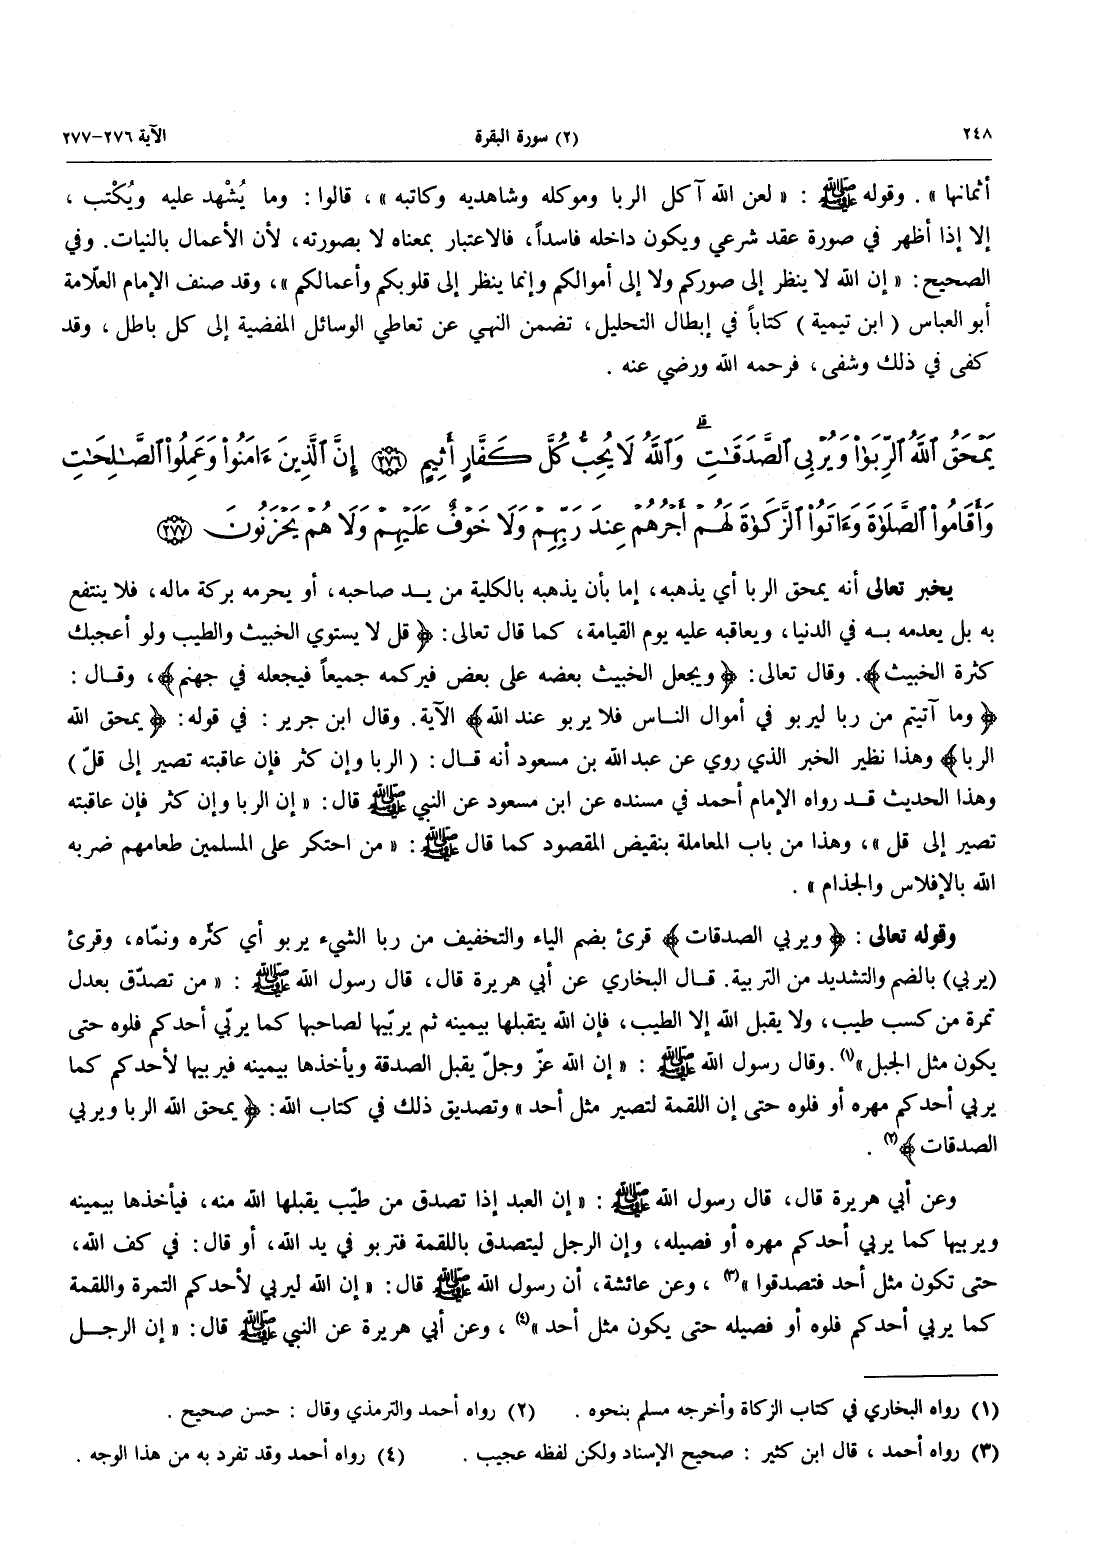 ٢٤٨ (٢) سورة البقرة الآية ٢٧٦-٢٧٧
أثمانها » . وقوله ﷺ : « لعن الله آكل الربا وموكله وشاهديه وكاتبه » ، قالوا : وما يُشْهد عليه ويُكْتب ،
إلا إذا أظهر في صورة عقد شرعي ويكون داخله فاسداً، فالاعتبار بمعناه لا بصورته، لأن الأعمال بالنيات. وفي
الصحيح: « إن الله لا ينظر إلى صوركم ولا إلى أموالكم وإنما ينظر إلى قلوبكم وأعمالكم »، وقد صنف الإمام العلّامة
أبو العباس ( ابن تيمية ) كتاباً في إبطال التحليل، تضمن النهي عن تعاطي الوسائل المفضية إلى كل باطل ، وقد
كفى في ذلك وشفى ، فرحمه الله ورضي عنه .
يَمْحَقُ ٱللَّهُ ٱلرِّبَوٰا۟ وَيُرْبِى ٱلصَّدَقَـٰتِ ۗ وَٱللَّهُ لَا يُحِبُّ كُلَّ كَفَّارٍ أَثِيمٍ ﴿٢٧٦﴾ إِنَّ ٱلَّذِينَ ءَامَنُوا۟ وَعَمِلُوا۟ ٱلصَّـٰلِحَـٰتِ
وَأَقَامُوا۟ ٱلصَّلَوٰةَ وَءَاتَوُا۟ ٱلزَّكَوٰةَ لَهُمْ أَجْرُهُمْ عِندَ رَبِّهِمْ وَلَا خَوْفٌ عَلَيْهِمْ وَلَا هُمْ يَحْزَنُونَ ﴿٢٧٧﴾
يخبر تعالى أنه يمحق الربا أي يذهبه، إما بأن يذهبه بالكلية من يـد صاحبه، أو يحرمه بركة ماله، فلا ينتفع
به بل يعدمه بـه في الدنيا، ويعاقبه عليه يوم القيامة، كما قال تعالى: ﴿ قل لا يستوي الخبيث والطيب ولو أعجبك
كثرة الخبيث﴾. وقال تعالى: ﴿ ويجعل الخبيث بعضه على بعض فيركمه جميعاً فيجعله في جهنم﴾، وقـال :
﴿ وما آتيتم من ربا ليربو في أموال النـاس فلا يربو عند الله﴾ الآية. وقال ابن جرير : في قوله: ﴿ يمحق الله
الربا﴾ وهذا نظير الخبر الذي روي عن عبد الله بن مسعود أنه قـال : ( الربا وإن كثر فإن عاقبته تصير إلى قلّ )
وهذا الحديث قـد رواه الإمام أحمد في مسنده عن ابن مسعود عن النبي ﷺ قال: « إن الربا وإن كثر فإن عاقبته
تصير إلى قل »، وهذا من باب المعاملة بنقيض المقصود كما قال ﷺ: « من احتكر على المسلمين طعامهم ضربه
الله بالإفلاس والجذام » .
وقوله تعالى : ﴿ ويربي الصدقات ﴾ قرئ بضم الياء والتخفيف من ربا الشيء يربو أي كثّره ونمّاه، وقرئ
(يربي) بالضم والتشديد من التربية. قـال البخاري عن أبي هريرة قال، قال رسول الله ﷺ : « من تصدّق بعدل
تمرة من كسب طيب، ولا يقبل الله إلا الطيب، فإن الله يتقبلها بيمينه ثم يربّيها لصاحبها كما يربّي أحدكم فلوه حتى
يكون مثل الجبل »(١). وقال رسول الله ﷺ : « إن الله عزّ وجلّ يقبل الصدقة ويأخذها بيمينه فيربيها لأحدكم كما
يربي أحدكم مهره أو فلوه حتى إن اللقمة لتصير مثل أحد » وتصديق ذلك في كتاب الله: ﴿ يمحق الله الربا ويربي
الصدقات﴾(٢) .
وعن أبي هريرة قال، قال رسول الله ﷺ : « إن العبد إذا تصدق من طيّب يقبلها الله منه، فيأخذها بيمينه
ويربيها كما يربي أحدكم مهره أو فصيله، وإن الرجل ليتصدق باللقمة فتربو في يد الله، أو قال: في كف الله،
حتى تكون مثل أحد فتصدقوا »(٣) ، وعن عائشة، أن رسول الله ﷺ قال: « إن الله ليربي لأحدكم التمرة واللقمة
كما يربي أحدكم فلوه أو فصيله حتى يكون مثل أحد »(٤) ، وعن أبي هريرة عن النبي ﷺ قال: « إن الرجـل
(١) رواه البخاري في كتاب الزكاة وأخرجه مسلم بنحوه . (٢) رواه أحمد والترمذي وقال : حسن صحيح .
(٣) رواه أحمد ، قال ابن كثير : صحيح الإسناد ولكن لفظه عجيب . (٤) رواه أحمد وقد تفرد به من هذا الوجه .